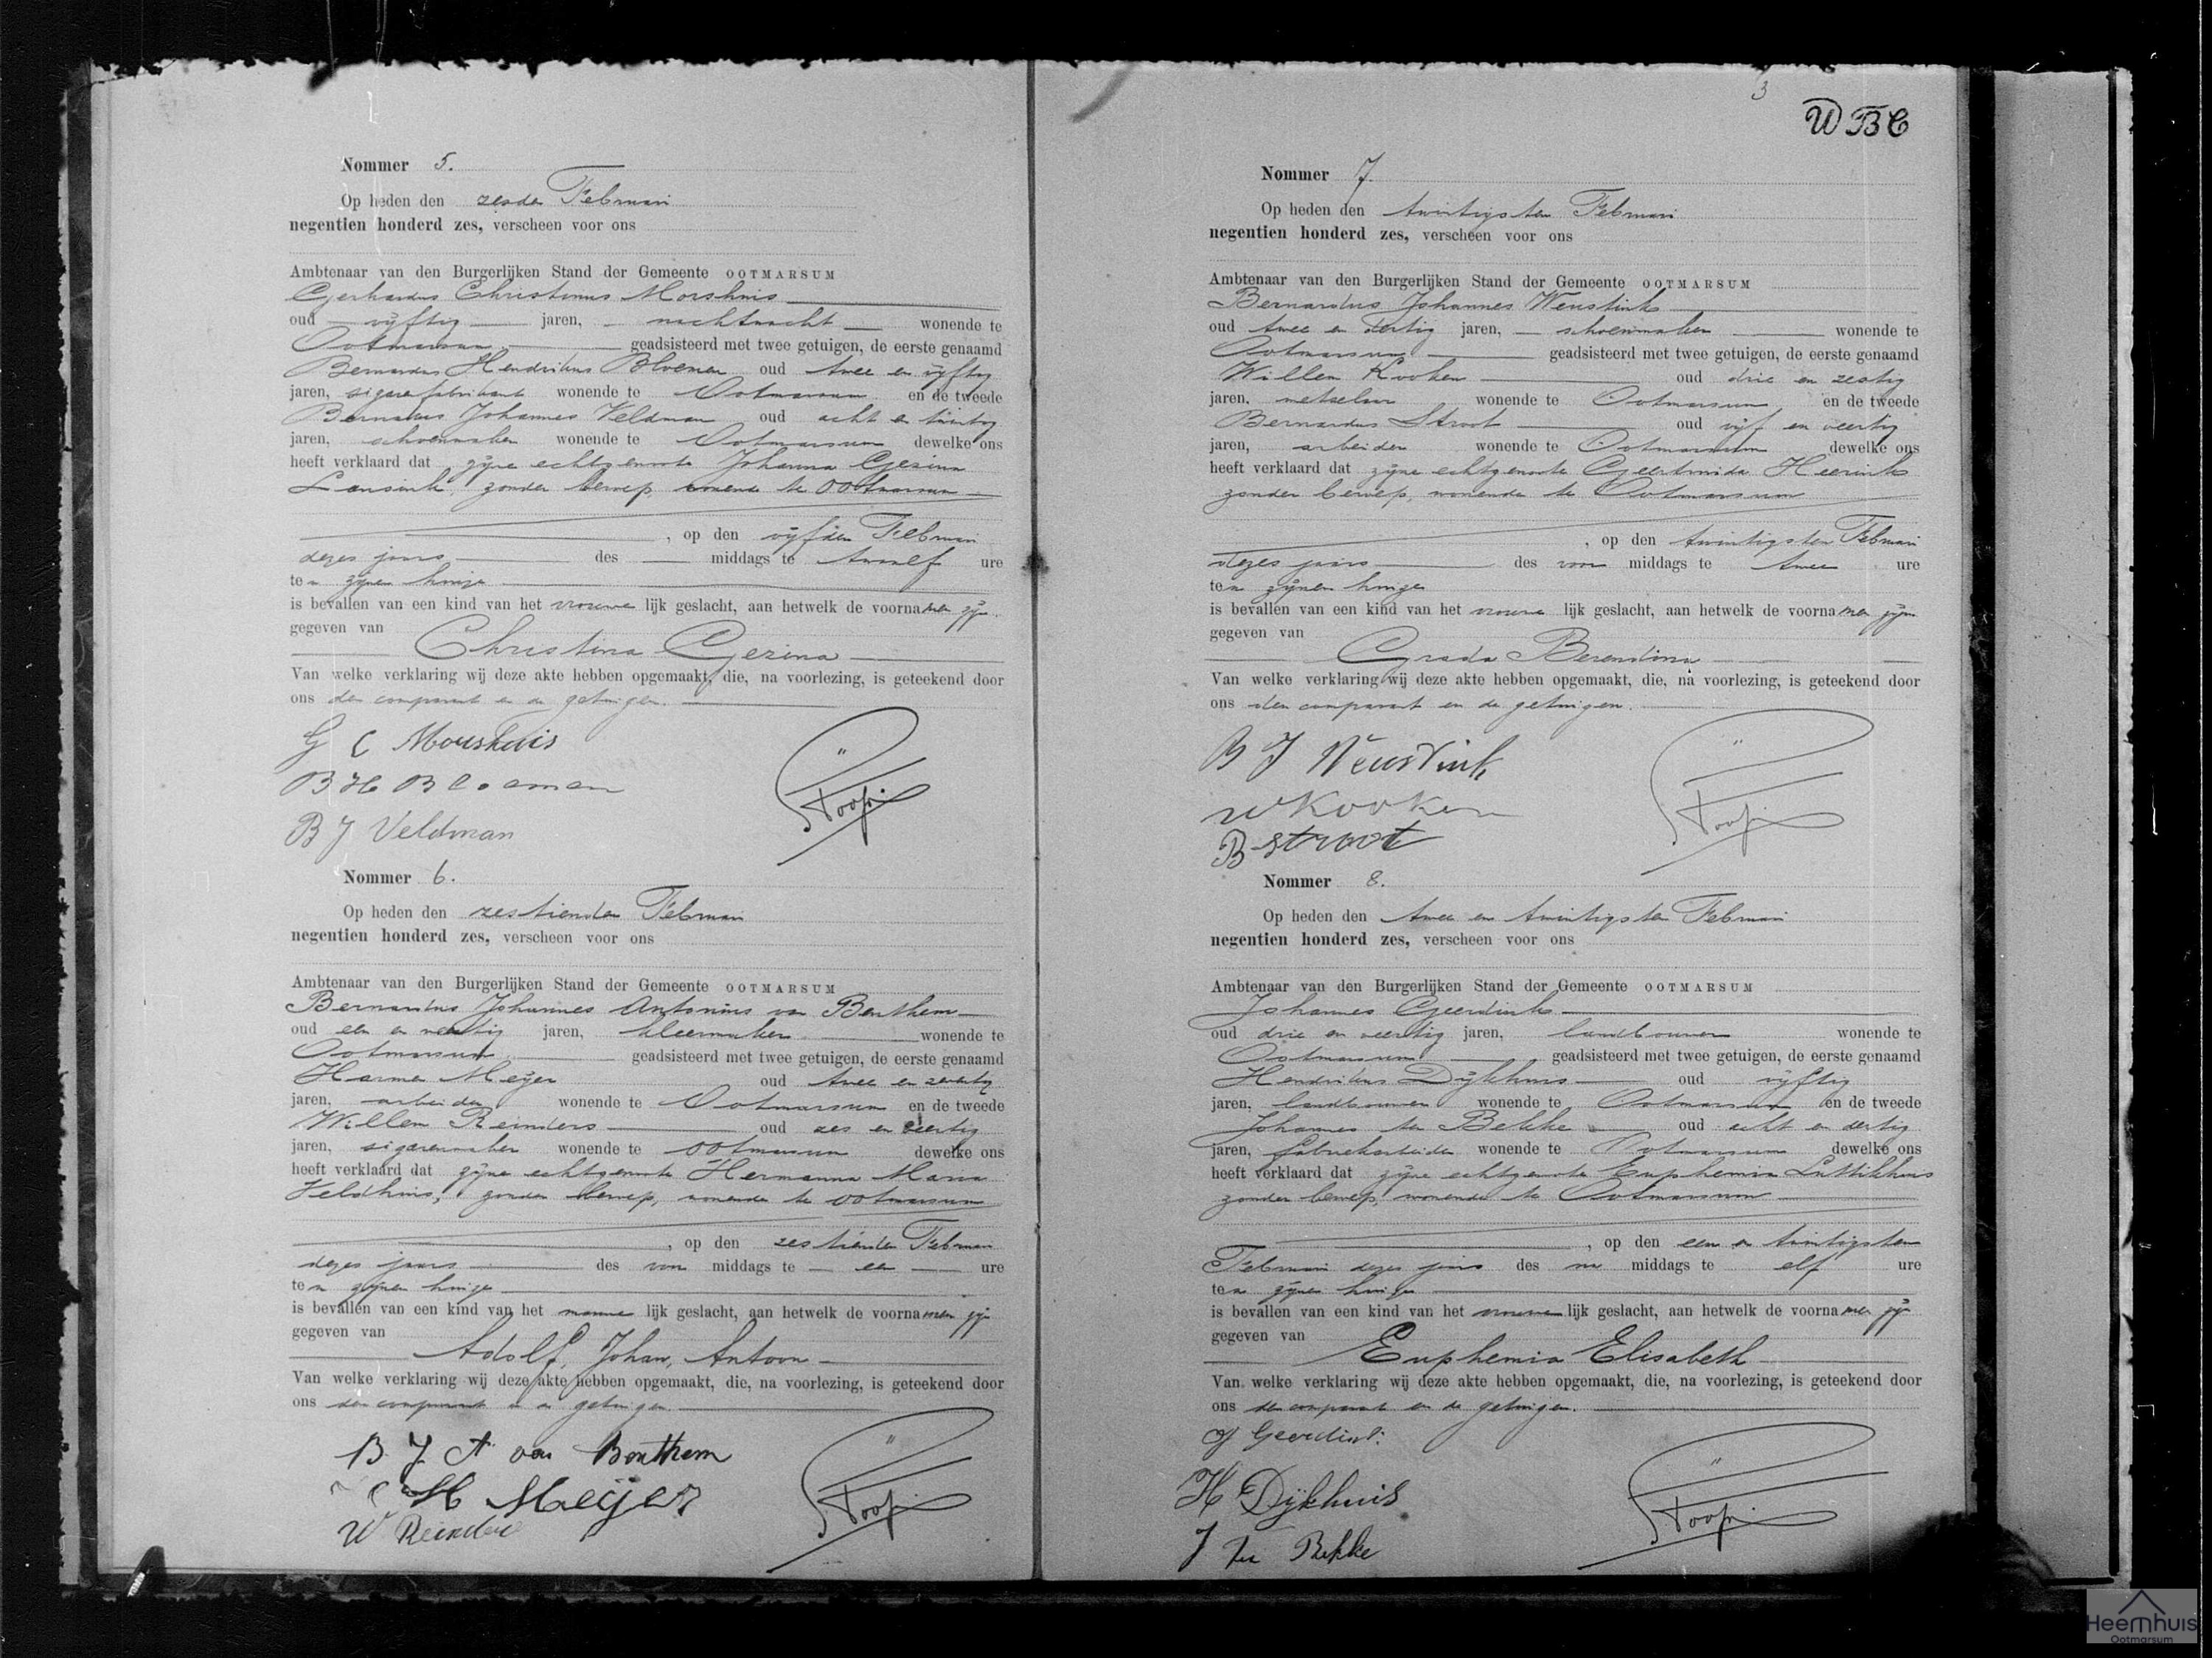 Nommer 5.
Op heden den zesden Februari
negentien honderd zes, verscheen voor ons
Ambtenaar van den Burgerlijken Stand der Gemeente OOTMARSUM
Gerhardus Christinus Morshuis
oud vijftig jaren, nachtwacht wonende te
Ootmarsum geadsisteerd met twee getuigen, de eerste genaamd
Bernardus Hendrikus Bloemen oud twee en vijftig
jaren, sigarefabrikant wonende te Ootmarsum en de tweede
Bernardus Johannes Veldman oud acht en twintig
jaren, schoenmaker wonende te Ootmarsum dewelke ons
heeft verklaard dat zijne echtgenoote Johanna Gezina
Lansink, zonder beroep, wonende te Ootmarsum
, op den vijfden Februari
dezes jaars des middags te twaalf ure
ten zijnen huize
is bevallen van een kind van het vrouwe lijk geslacht, aan hetwelk de voornamen zijn
gegeven van
Christina Gezina
Van welke verklaring wij deze akte hebben opgemaakt, die, na voorlezing, is geteekend door
ons den comparant en de getuigen.
G C Morshuis
B H Bloeman
B J Veldman
Nommer 6.
Op heden den zestienden Februari
negentien honderd zes, verscheen voor ons
Ambtenaar van den Burgerlijken Stand der Gemeente OOTMARSUM
Bernardus Johannes Antonius van Benthem
oud een en veertig jaren, kleermaker wonende te
Ootmarsum geadsisteerd met twee getuigen, de eerste genaamd
Harmen Meijer oud twee en zeventig
jaren, arbeider wonende te Ootmarsum en de tweede
Willem Reinders oud zes en veertig
jaren, sigarenmaker wonende te Ootmarsum dewelke ons
heeft verklaard dat zijne echtgenoote Hermanna Maria
Veldhuis, zonder beroep, wonende te Ootmarsum
, op den zestienden Februari
dezes jaars des voor middags te een ure
ten zijnen huize
is bevallen van een kind van het manne lijk geslacht, aan hetwelk de voornamen zijn
gegeven van
Adolf, Johan, Antoon
Van welke verklaring wij deze akte hebben opgemaakt, die, na voorlezing, is geteekend door
ons den comparant en de getuigen.
B. J. A van Benthem
H Meijer
W Reinders
3
WBC
Nommer 7.
Op heden den twintigsten Februari
negentien honderd zes, verscheen voor ons
Ambtenaar van den Burgerlijken Stand der Gemeente OOTMARSUM
Bernardus Johannes Weustink
oud twee en dertig jaren, schoenmaker wonende te
Ootmarsum geadsisteerd met twee getuigen, de eerste genaamd
Willem Kooken oud drie en zestig
jaren, metselaar wonende te Ootmarsum en de tweede
Bernardus Stroot oud vijf en veertig
jaren, arbeider wonende te Ootmarsum dewelke ons
heeft verklaard dat zijne echtgenoote Geertruida Heerink
zonder beroep, wonende te Ootmarsum
, op den twintigsten Februari
dezes jaars des voor middags te twee ure
ten zijnen huize
is bevallen van een kind van het vrouwe lijk geslacht, aan hetwelk de voornamen zijn
gegeven van
Grada Berendina
Van welke verklaring wij deze akte hebben opgemaakt, die, na voorlezing, is geteekend door
ons den comparant en de getuigen.
B J Weustink
W Kooken
B Stroot
Nommer 8.
Op heden den twee en twintigsten Februari
negentien honderd zes, verscheen voor ons
Ambtenaar van den Burgerlijken Stand der Gemeente OOTMARSUM
Johannes Geerdink
oud drie en veertig jaren, landbouwer wonende te
Ootmarsum geadsisteerd met twee getuigen, de eerste genaamd
Hendrikus Dijkhuis oud vijftig
jaren, landbouwer wonende te Ootmarsum en de tweede
Johannes ter Bekke oud acht en dertig
jaren, fabriekarbeider wonende te Ootmarsum dewelke ons
heeft verklaard dat zijne echtgenoote Euphemia Luttikhuis
zonder beroep, wonende te Ootmarsum
, op den een en twintigsten
Februari dezes jaars des na middags te elf ure
ten zijnen huize
is bevallen van een kind van het vrouwe lijk geslacht, aan hetwelk de voornamen zijn
gegeven van
Euphemia Elisabeth
Van welke verklaring wij deze akte hebben opgemaakt, die, na voorlezing, is geteekend door
ons den comparant en de getuigen.
J Geerdink
H Dijkhuis
J ter Bekke
Heemhuis
Ootmarsum